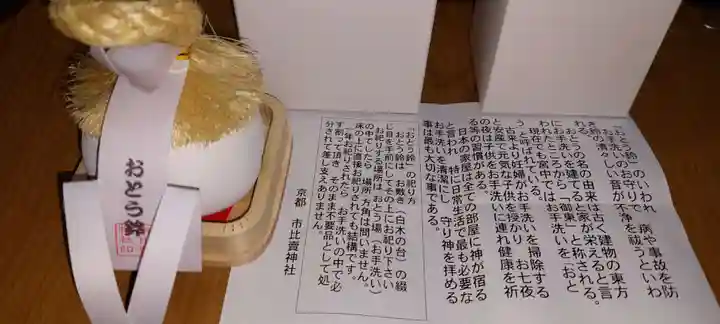 おとう鈴
「おとう鈴」のいわれ 病や事故を防
ぐお手洗いのお守りで
き鈴の清々しい音が不浄を祓うといわ
れる。
おとうの名の由来は古く建物の東方
にお手洗いを建てると家が栄えると言
われたところから「御東」と称される。
現在でも宮中ではお手洗いを“おと
う”と呼ばれている。
古来より妊婦がお手洗いを掃除する
と安産で元気な子供を授かり お七夜
の夜は子供をお手洗いに連れ健康を祈
る等の習慣がある。
日本の家屋は全ての部屋に神が宿る
と言われ 特に日常生活で最も必要な
お手洗いを清潔にし 守り神を拝める
事は最も大切な事である。
「おとう鈴」の祀り方
おとう鈴は、お敷き(白木の台)の綴
じ目を手前にしてその上にお祀り下さい
お祀りする場所はお上場(お手洗い)
の中でしたら 場所・方角は問いません。
床の上に直接お祀りされても結構です。
一年お祀りされたら お手洗いの中で必
ず割って頂き、そのまま不要品として処
分されて差し支えありません。
京都 市比賣神社